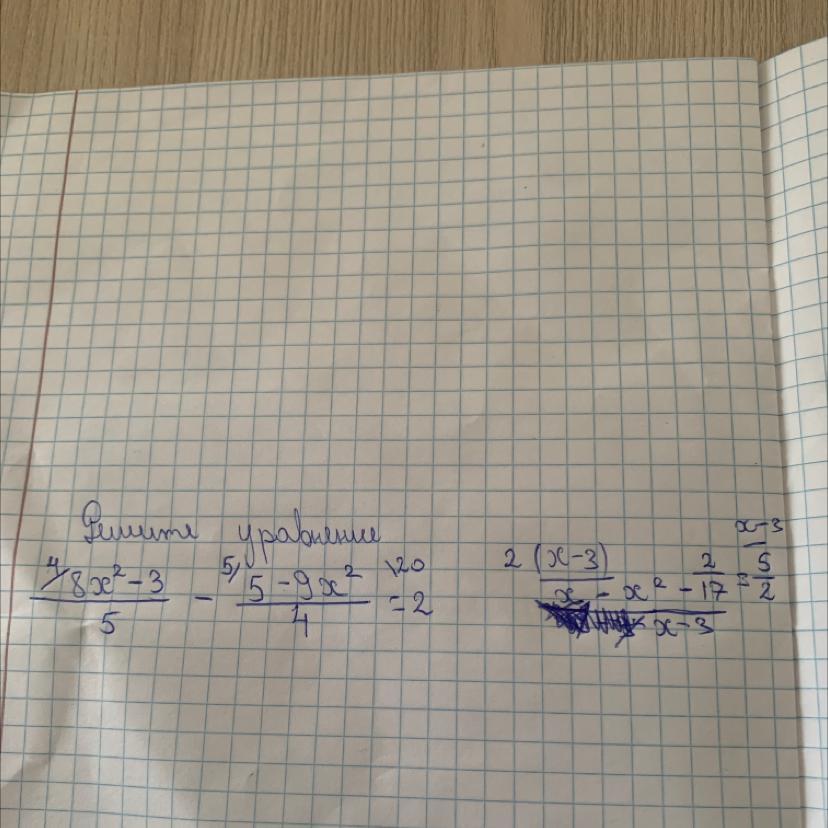 Решите уравнение
4/ 8x² - 3 / 5 - 5/ 5 - 9x² / 4 = 2 \20
2 (x-3) / x - x² - 17 / x-3 2/ = 5/2 x-3